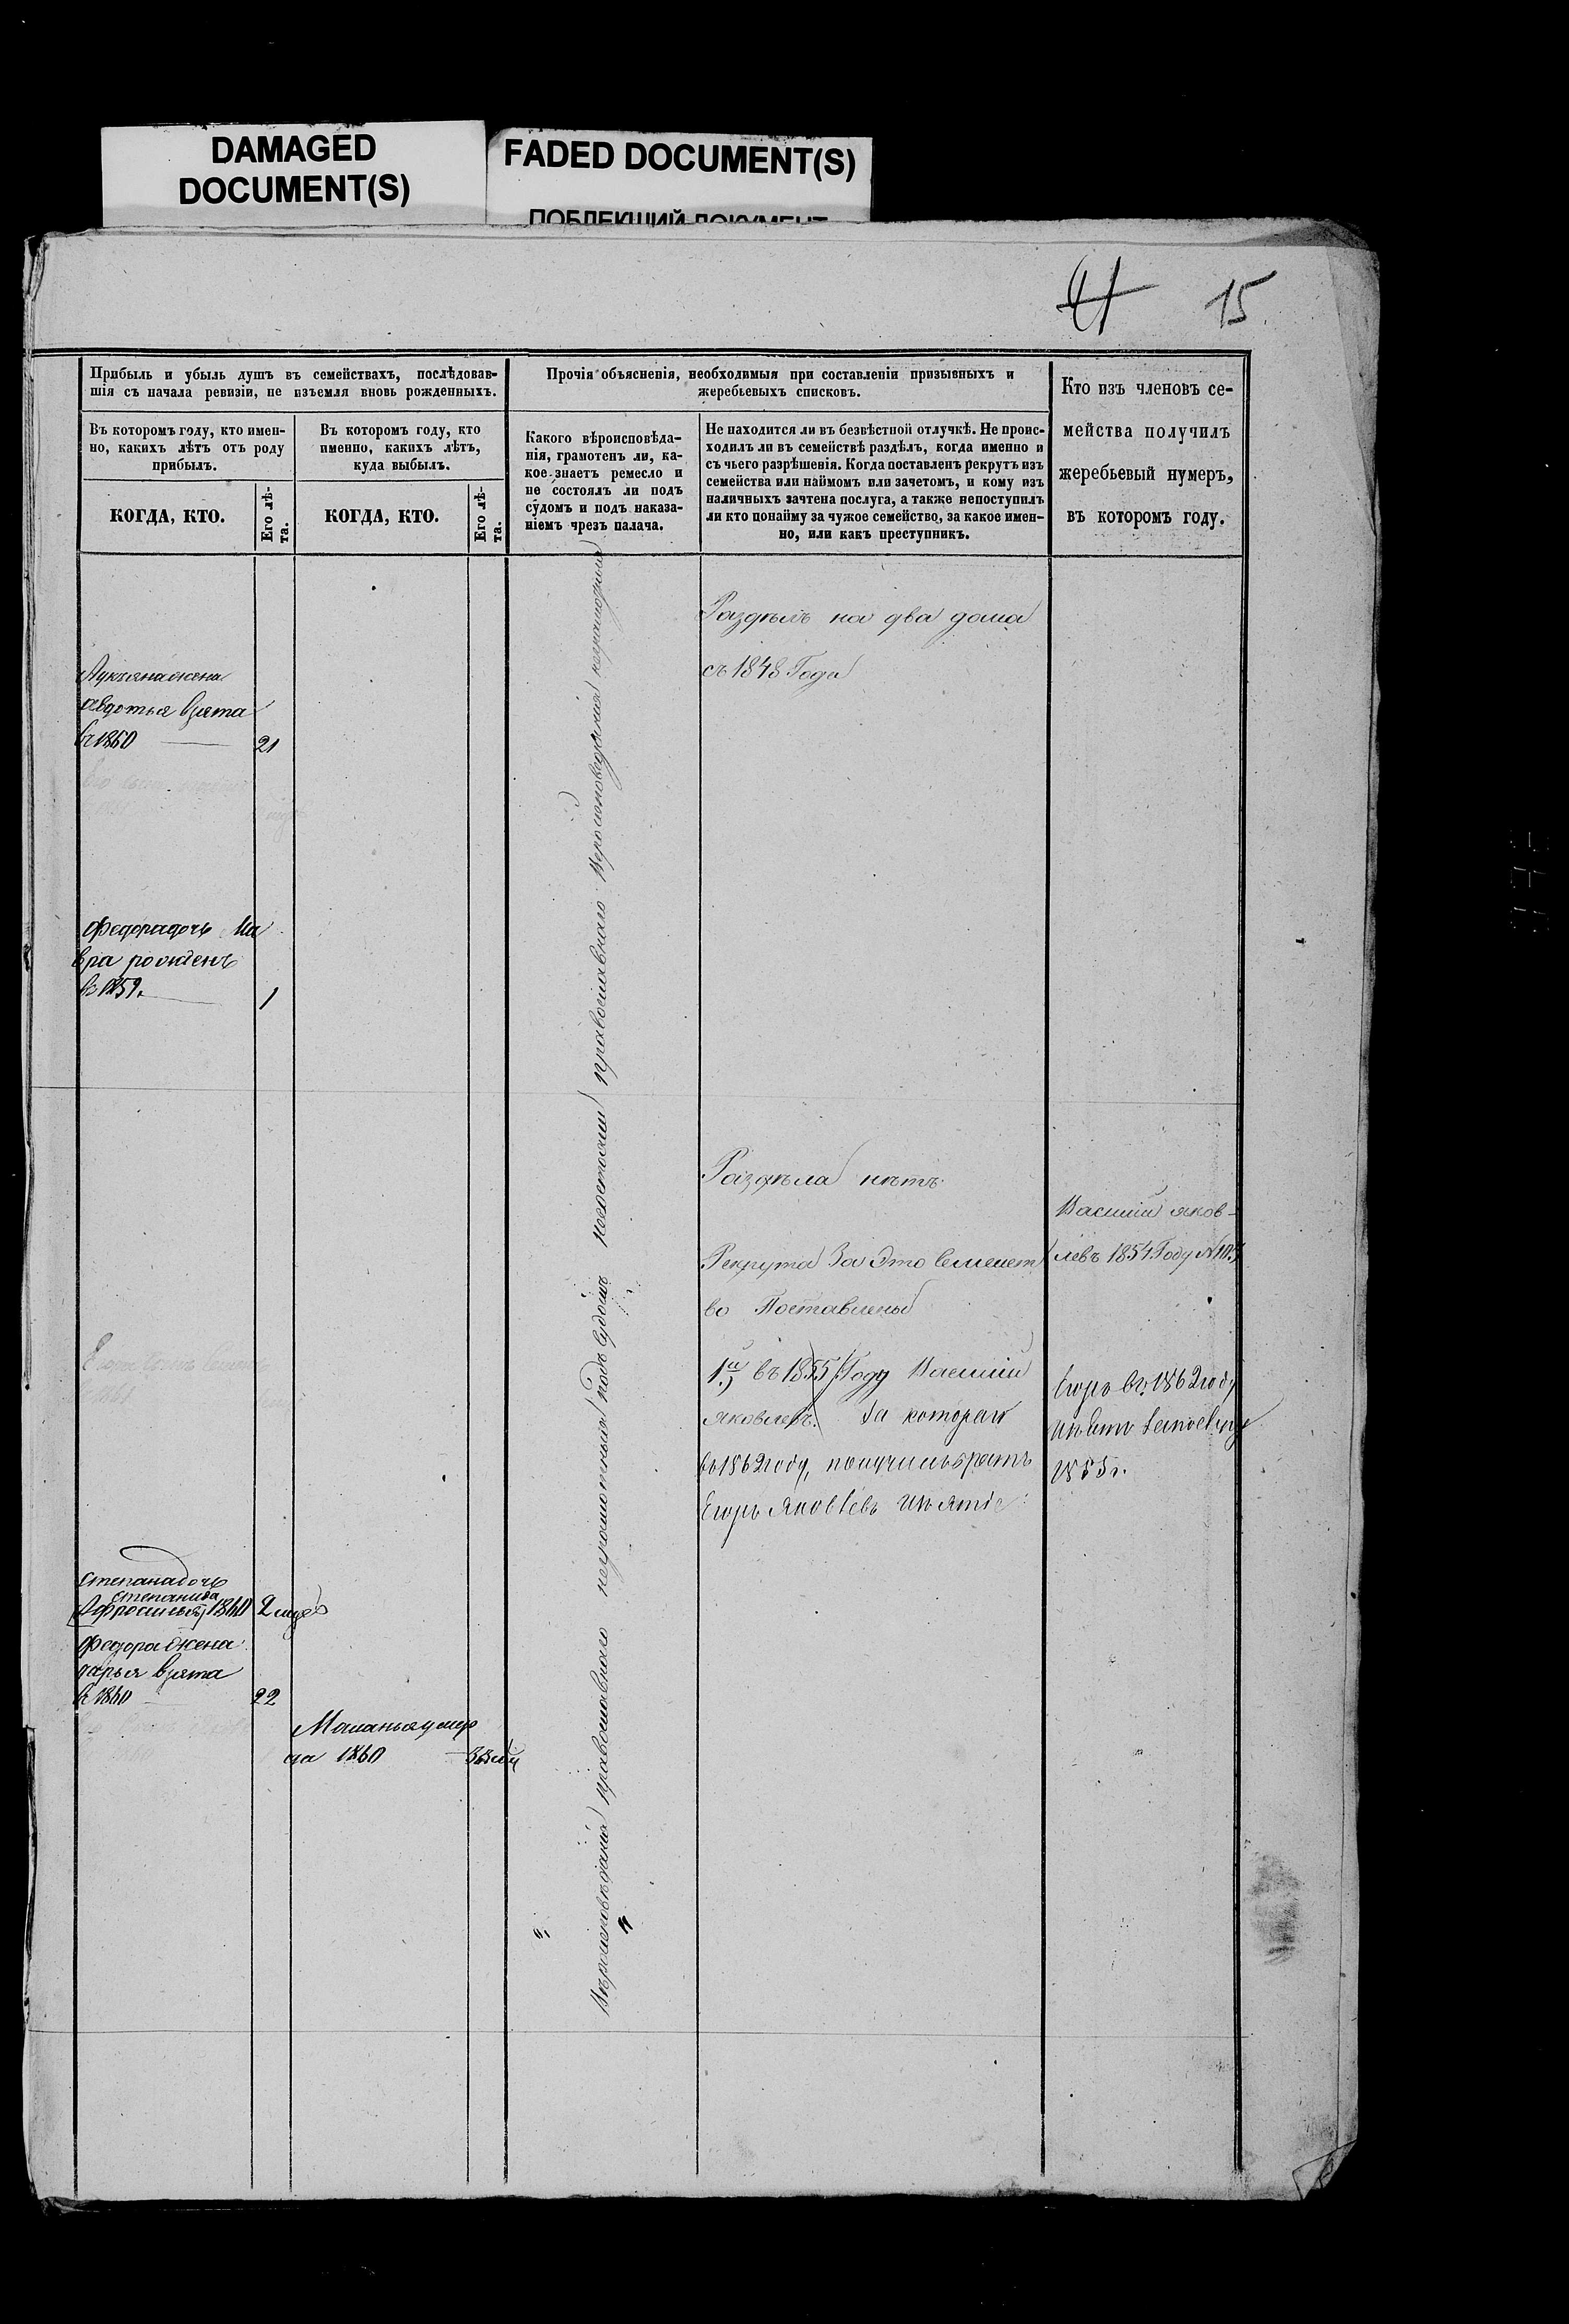 DAMAGED
DOCUMENT(S)
FADED DOCUMENT(S)
ПОБЛЕКШИЙ ДОКУМЕНТ
15
Прибыль и убыль душъ въ семействахъ, послѣдовав-
шія съ начала ревизіи, не изъемля вновь рожденныхъ.
Въ которомъ году, кто имен-
но, какихъ лѣтъ отъ роду
прибылъ.
КОГДА, КТО.
Его лѣ-
та.
Въ которомъ году, кто
именно, какихъ лѣтъ,
куда выбылъ.
КОГДА, КТО.
Его лѣ-
та.
Прочія объясненія, необходимыя при составленіи призывныхъ и
жеребьевыхъ списковъ.
Какого вѣроисповѣда-
нія, грамотенъ ли, ка-
кое знаетъ ремесло и
не состоялъ ли подъ
судомъ и подъ наказа-
ніемъ чрезъ палача.
Не находится ли въ безвѣстной отлучкѣ. Не проис-
ходилъ ли въ семействѣ раздѣлъ, когда именно и
съ чьего разрѣшенія. Когда поставленъ рекрутъ изъ
семейства или наймомъ или зачетомъ, и кому изъ
наличныхъ зачтена послуга, а также непоступилъ
ли кто понайму за чужое семейство, за какое имен-
но, или какъ преступникъ.
Кто изъ членовъ се-
мейства получилъ
жеребьевый нумеръ,
въ которомъ году.
Лукьяна жена
авдотья взята
въ 1860 21
Федора дочь Ма
вра рожденъ
въ 1859. 1
Степана дочь
Степанида
Афросинья 1860 2
Федора жена
дарья взята
въ 1860 22
Маланья умер
ла 1860
Вѣроисповѣданія православнаго неграмотныя подъ судомъ несостояли православнаго Вероисповеданія неграмотныя
Раздѣлъ на два дома
съ 1848 Года
Раздѣла нѣтъ
Рекрута За Это Семейст
во Поставлены
1й въ 1855 Году Василий
яковлевъ. За котораго
въ 1862 году, получилъ братъ
Егоръ Яковлевъ
Василий яков-
левъ 1854 Году №
Егоръ въ 1862 году